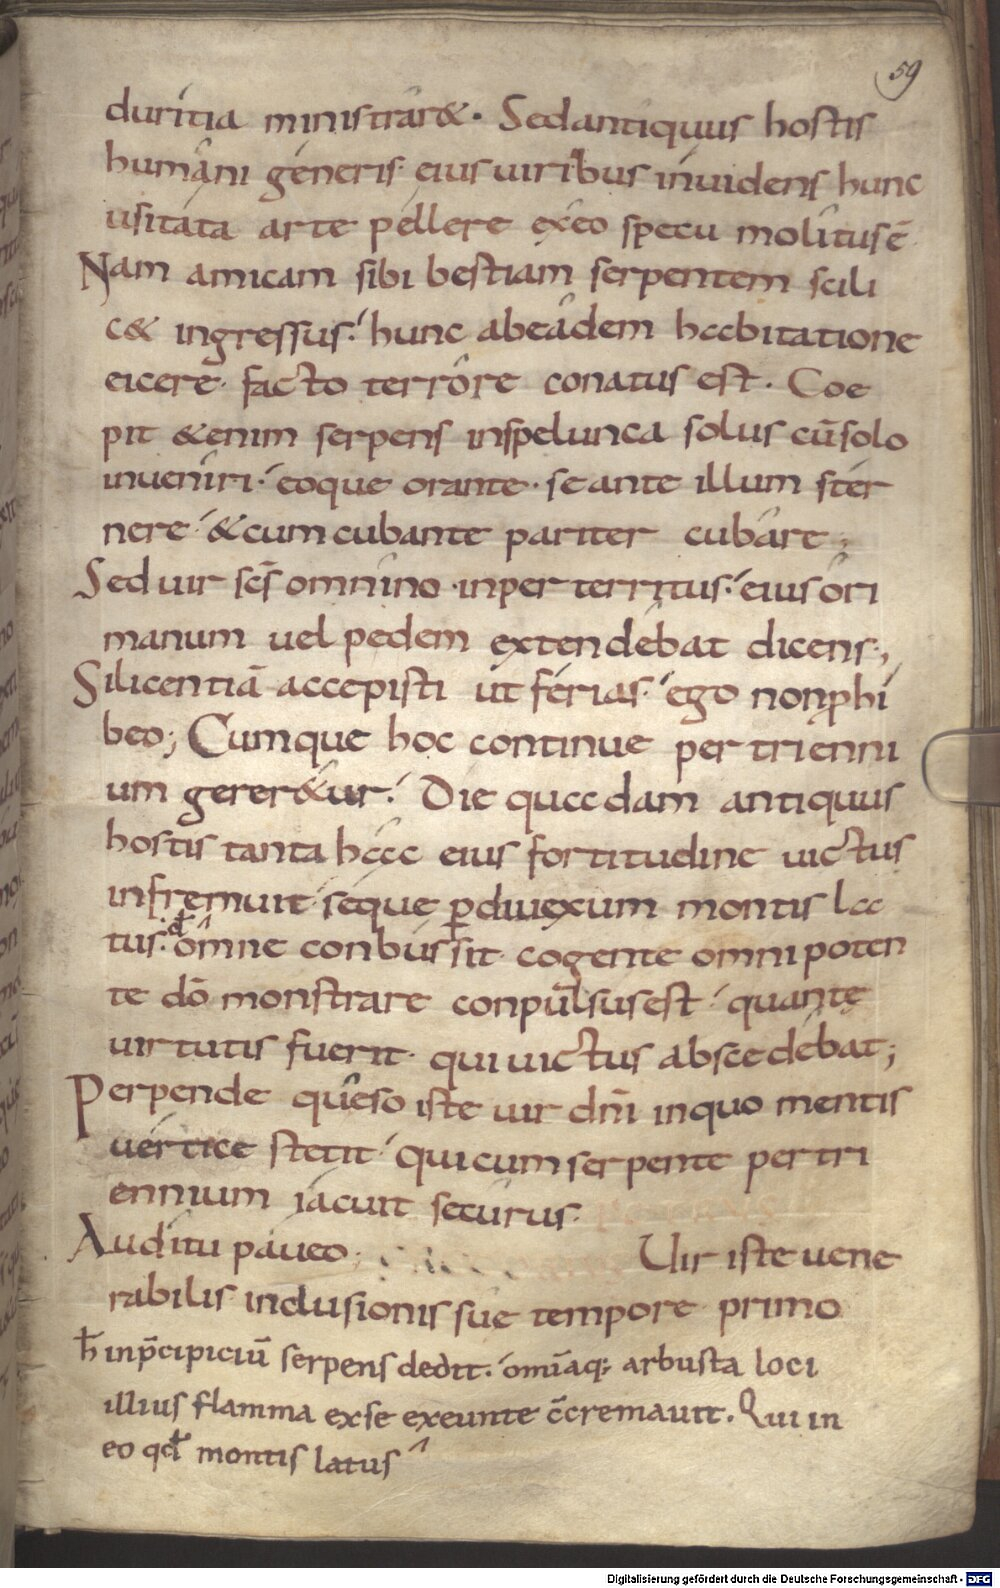 59
duritia ministrar&. Sed antiquus hostis
humani generis. eius uiribus inuidens hunc
usitata arte pellere ex eo specu molitus ē
Nam amicam sibi bestiam serpentem scili
c& ingressus. hunc ab eadem habitatione
eicere. facto terrore conatus est. Coe
pit &enim serpens in spelunca solus cū solo
inueniri. eoque orante. se ante illum ster
nere. & cum cubante pariter cubare;
Sed uir scs̄ omnino inperterritus. eius ori
manum uel pedem extendebat dicens;,
Si licentiā accepisti ut ferias. ego non ꝓhi
beo; Cumque hoc continue per trienni
um gerer&ur. Die quadam antiquus
hostis tanta hac eius fortitudine uictus
infremuit. seque ꝑ diuexum montis la
tus. dˉ omne conbussit. cogente omnipoten
te dō monstrare conpulsus est. quante
uirtutis fuerit. qui uictus abscedebat;
Perpende queso iste uir dn̄i in quo mentis
uertice stetit. qui cum serpente per tri
ennium iacuit securus.
Auditu paueo. Uir iste uene
rabilis inclusionis sue tempore primo
h̄ in p̄cipiciū serpens dedit. om̄iaq; arbusta loci
illius flamma ex se exeunte c̄cremauit. Qui in
eo qđ montis latus
Digitalisierung gefördert durch die Deutsche Forschungsgemeinschaft - DFG